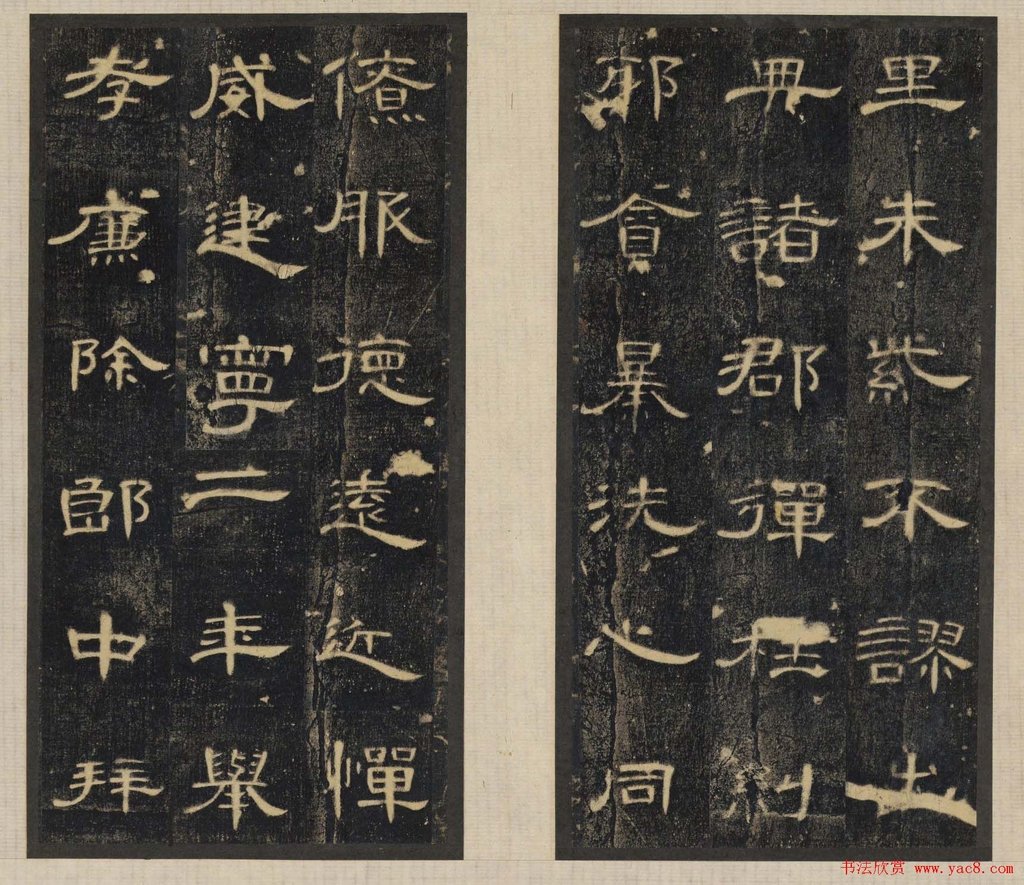 里朱紫不謬出
典諸郡彈枉糾
邪貪暴洗心同
僚服德遠近憚
威建寧二年舉
孝廉除郎中拜
书法欣赏 www.yac8.com